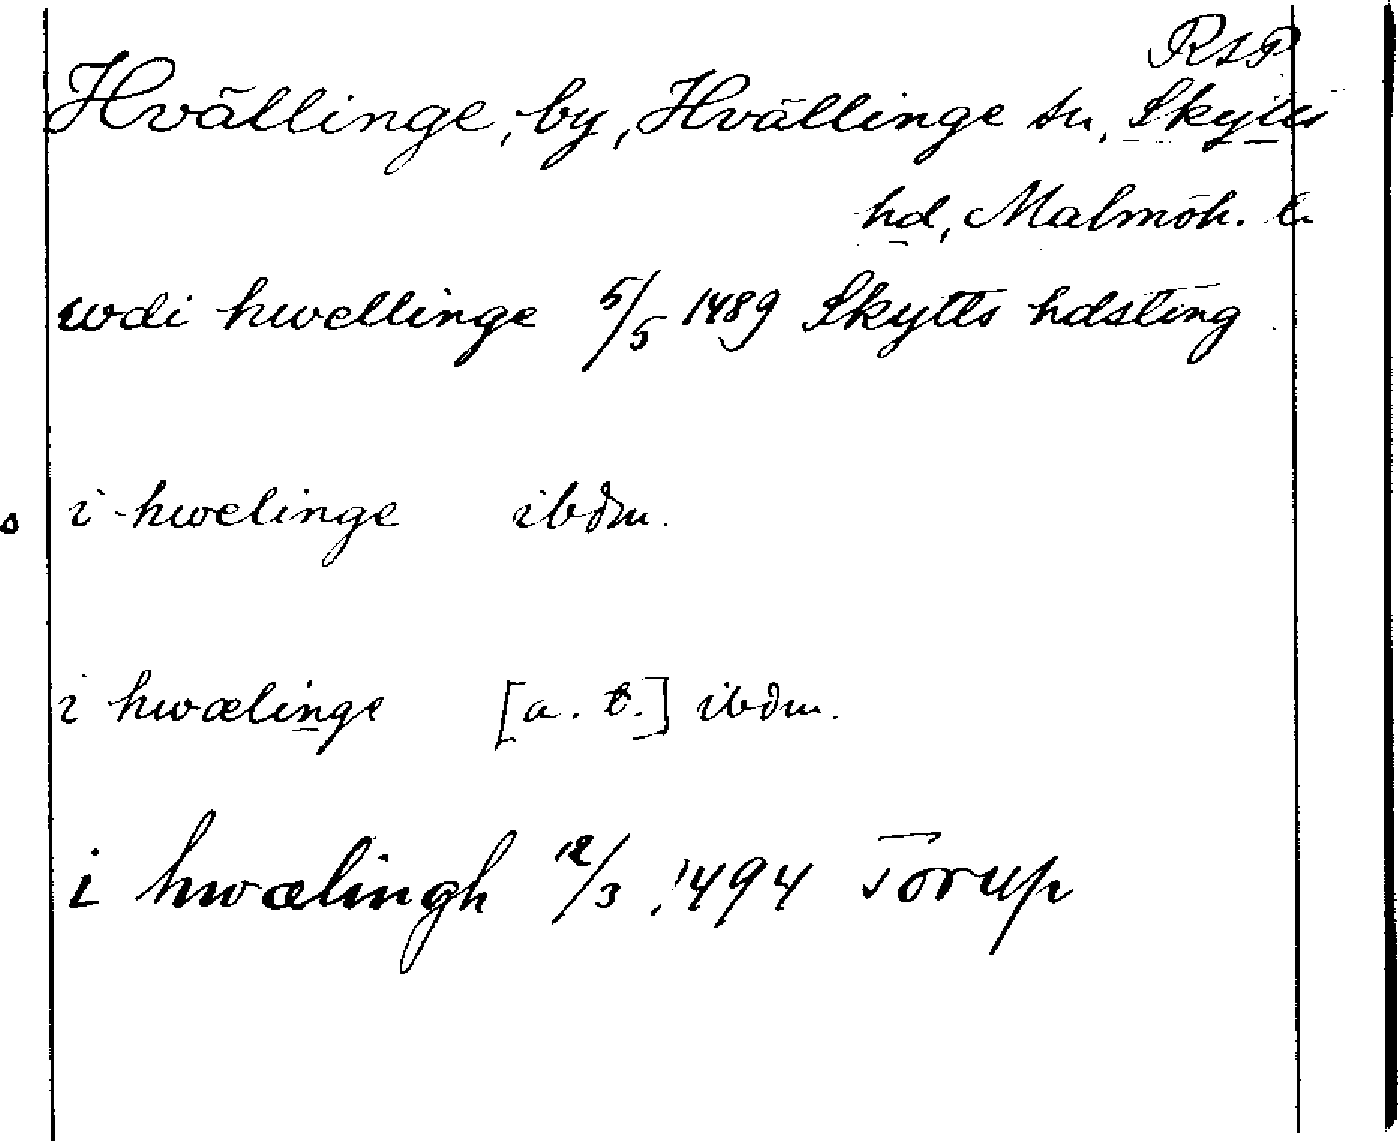 RSP
Hvällinge, by, Hvällinge sn, Skytts
hd, Malmöh. l.
wdi hwellinge 5/5 1489 Skytts hdsting
i hwelinge ibdm.
i hwælinge [a. t.] ibdm.
i hwælingh 12/3 1494 Torup